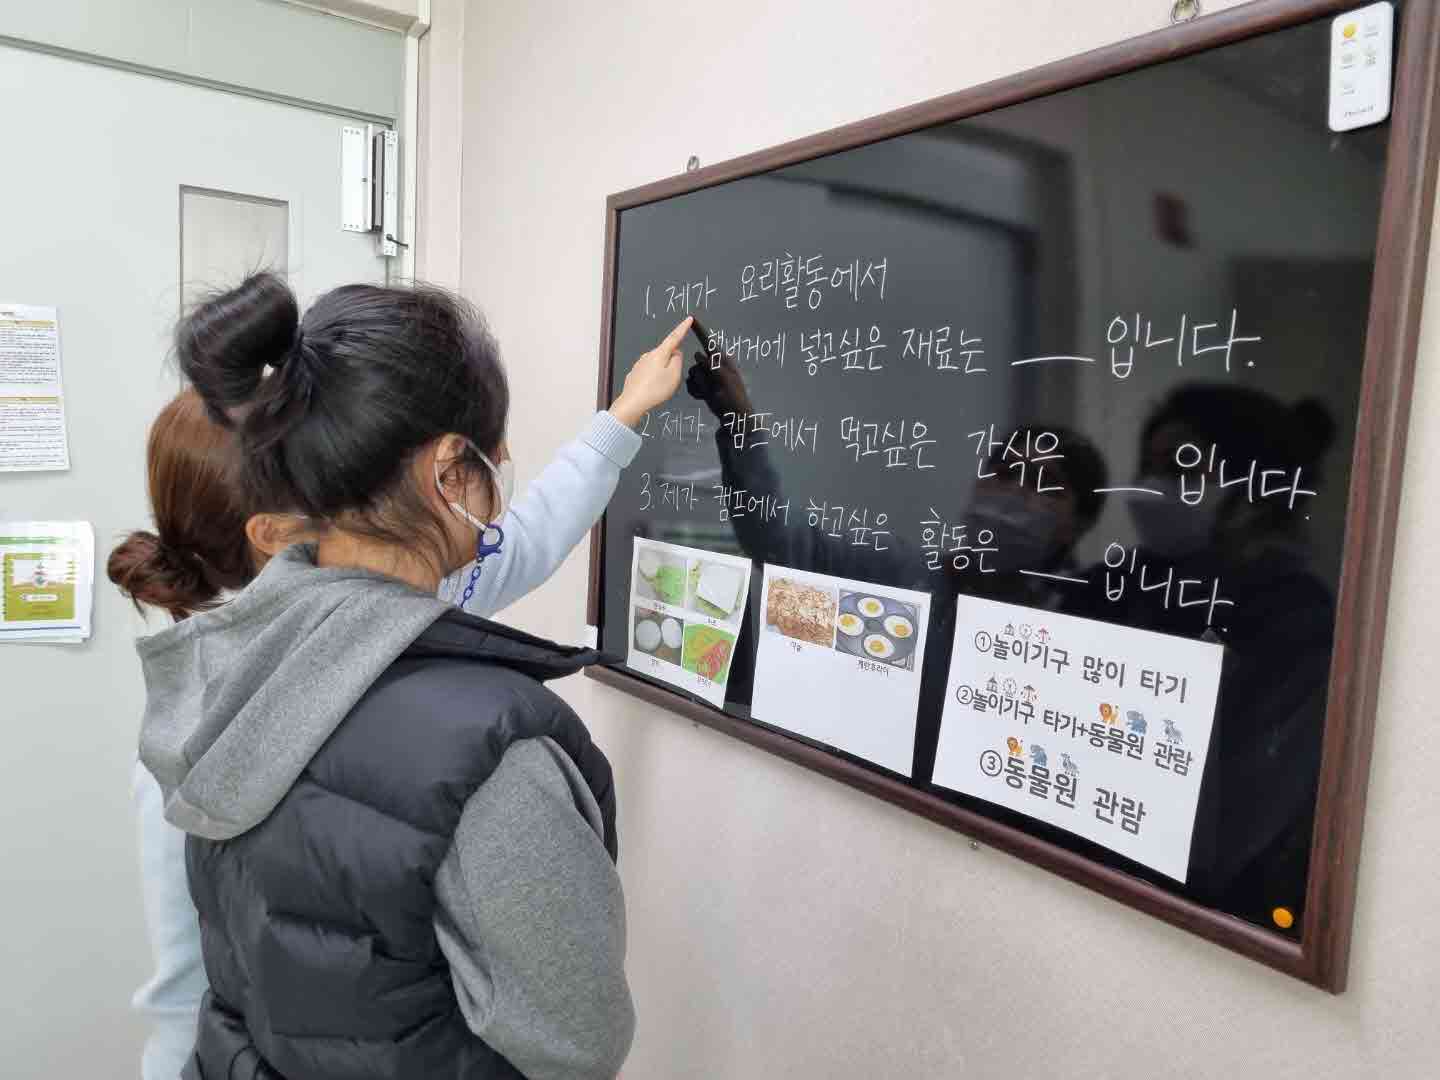 1. 제가 요리활동에서
햄버거에 넣고싶은 재료는 ___ 입니다.
2. 제가 캠프에서 먹고싶은 간식은 ___ 입니다.
3. 제가 캠프에서 하고싶은 활동은 ___ 입니다.
계란후라이
①놀이기구 많이 타기
②놀이기구 타기+동물원 관람
③동물원 관람